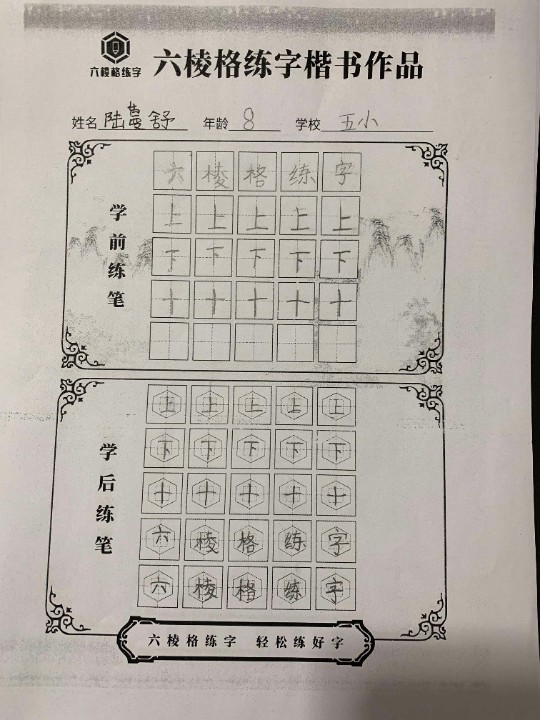 六棱格练字
六棱格练字楷书作品
姓名 陆蔓舒 年龄 8 学校 五小
学前练笔
六棱格练字
上上上上上
下下下下下
十十十十十
学后练笔
上上上上上
下下下下下
十十十十十
六棱格练字
六棱格练字
六棱格练字 轻松练好字